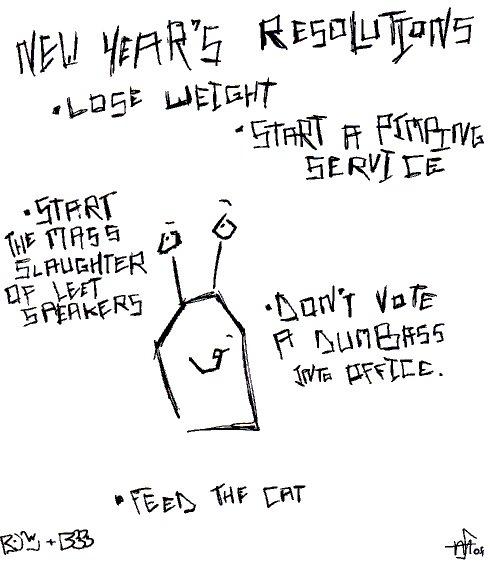 NEW YEAR'S RESOLUTIONS
• LOSE WEIGHT
• START A PIMPING
SERVICE
• START
THE MASS
SLAUGHTER
OF LEET
SPEAKERS
• DON'T VOTE
A DUMBASS
INTO OFFICE.
• FEED THE CAT